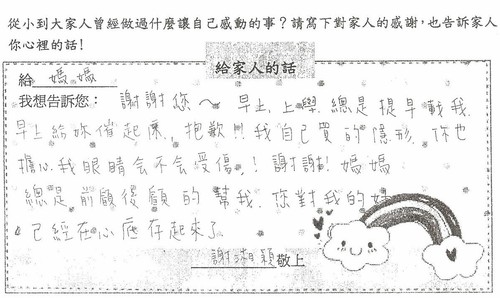 從小到大家人曾經做過什麼讓自己感動的事？請寫下對家人的感謝，也告訴家人
你心裡的話！
給家人的話
給 媽媽
我想告訴您： 謝謝您～ 早上上學總是提早載我
早上給妳催起床，抱歉!!! 我自己買的隱形，你也
擔心我眼睛会不会受傷!! 謝謝! 媽媽
總是前顧後顧的幫我，您對我的好
已經在心底存起來了
謝淑穎 敬上